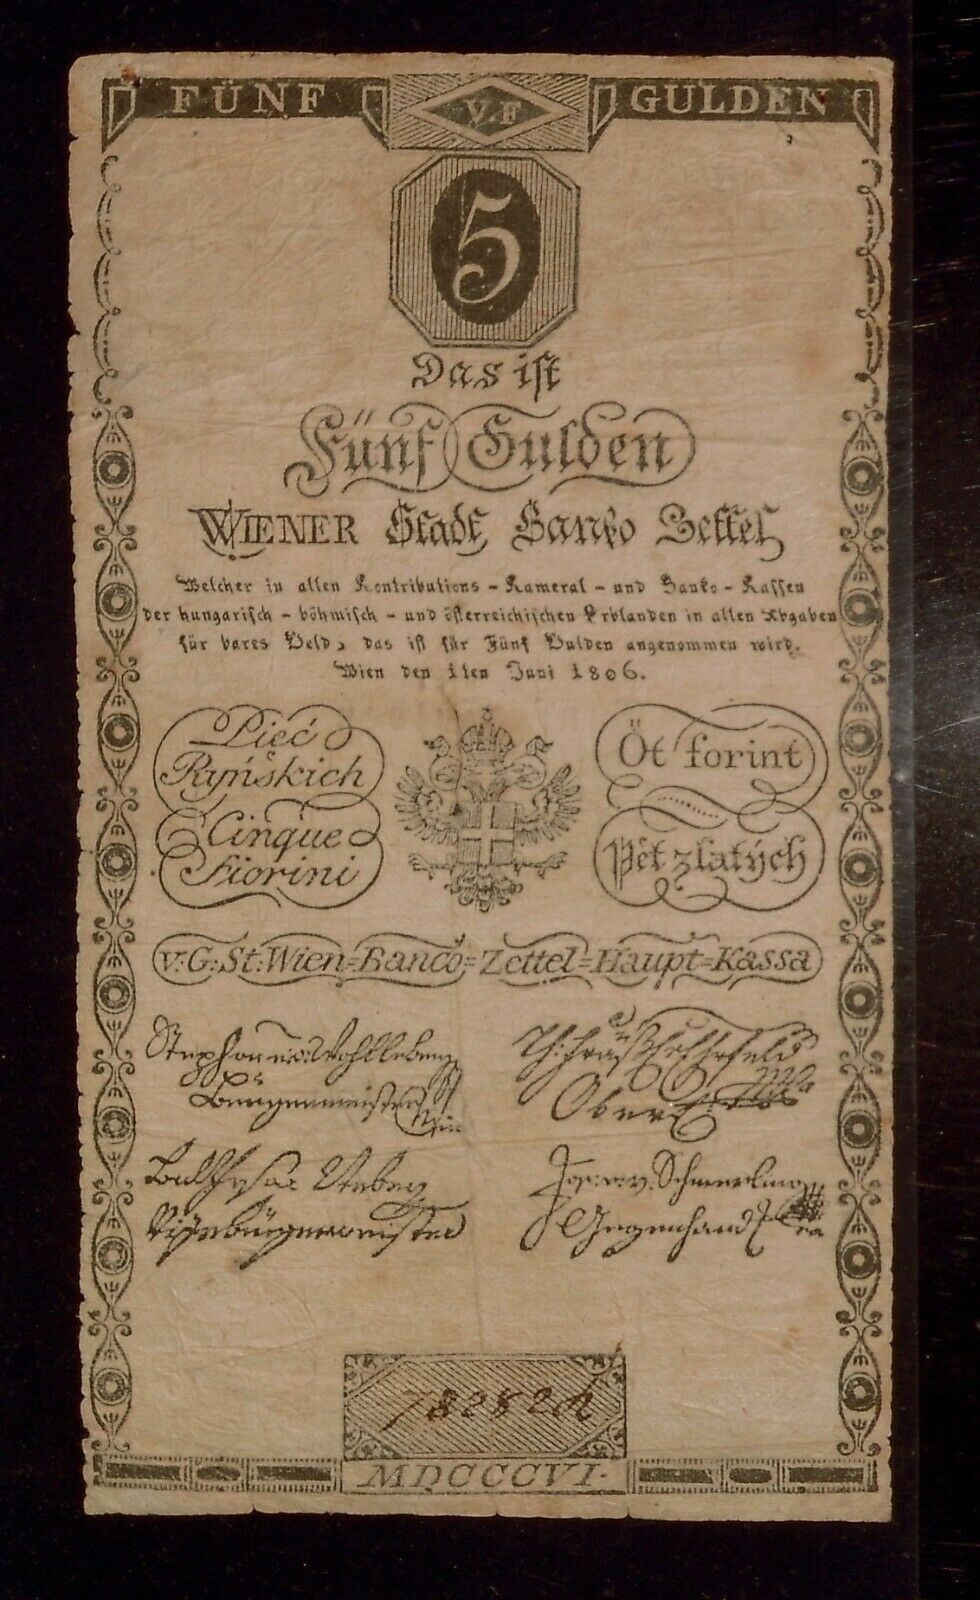 FÜNF V.F GULDEN
5
Das ist
Fünf Gulden
WIENER Stadt Banko Zettel
Welcher in allen Kontributions - Kameral - und Banko - Kassen
der hungarisch - böhmisch - und österreichischen Erblanden in allen Abgaben
für bares Geld, das ist für Fünf Gulden angenommen wird.
Wien den 1ten Juni 1806.
Pięć
Ryńskich
Cinque
Fiorini
Öt forint
Pět zlatých
v: G: St: Wien=Banco=Zettel=Haupt=Kassa
Stephan v: Wohlleben
Burgermeister
Oberst
Vizebürgermeister
Jos: v: Schmerling
Gegenhand
78282
MDCCCVI.